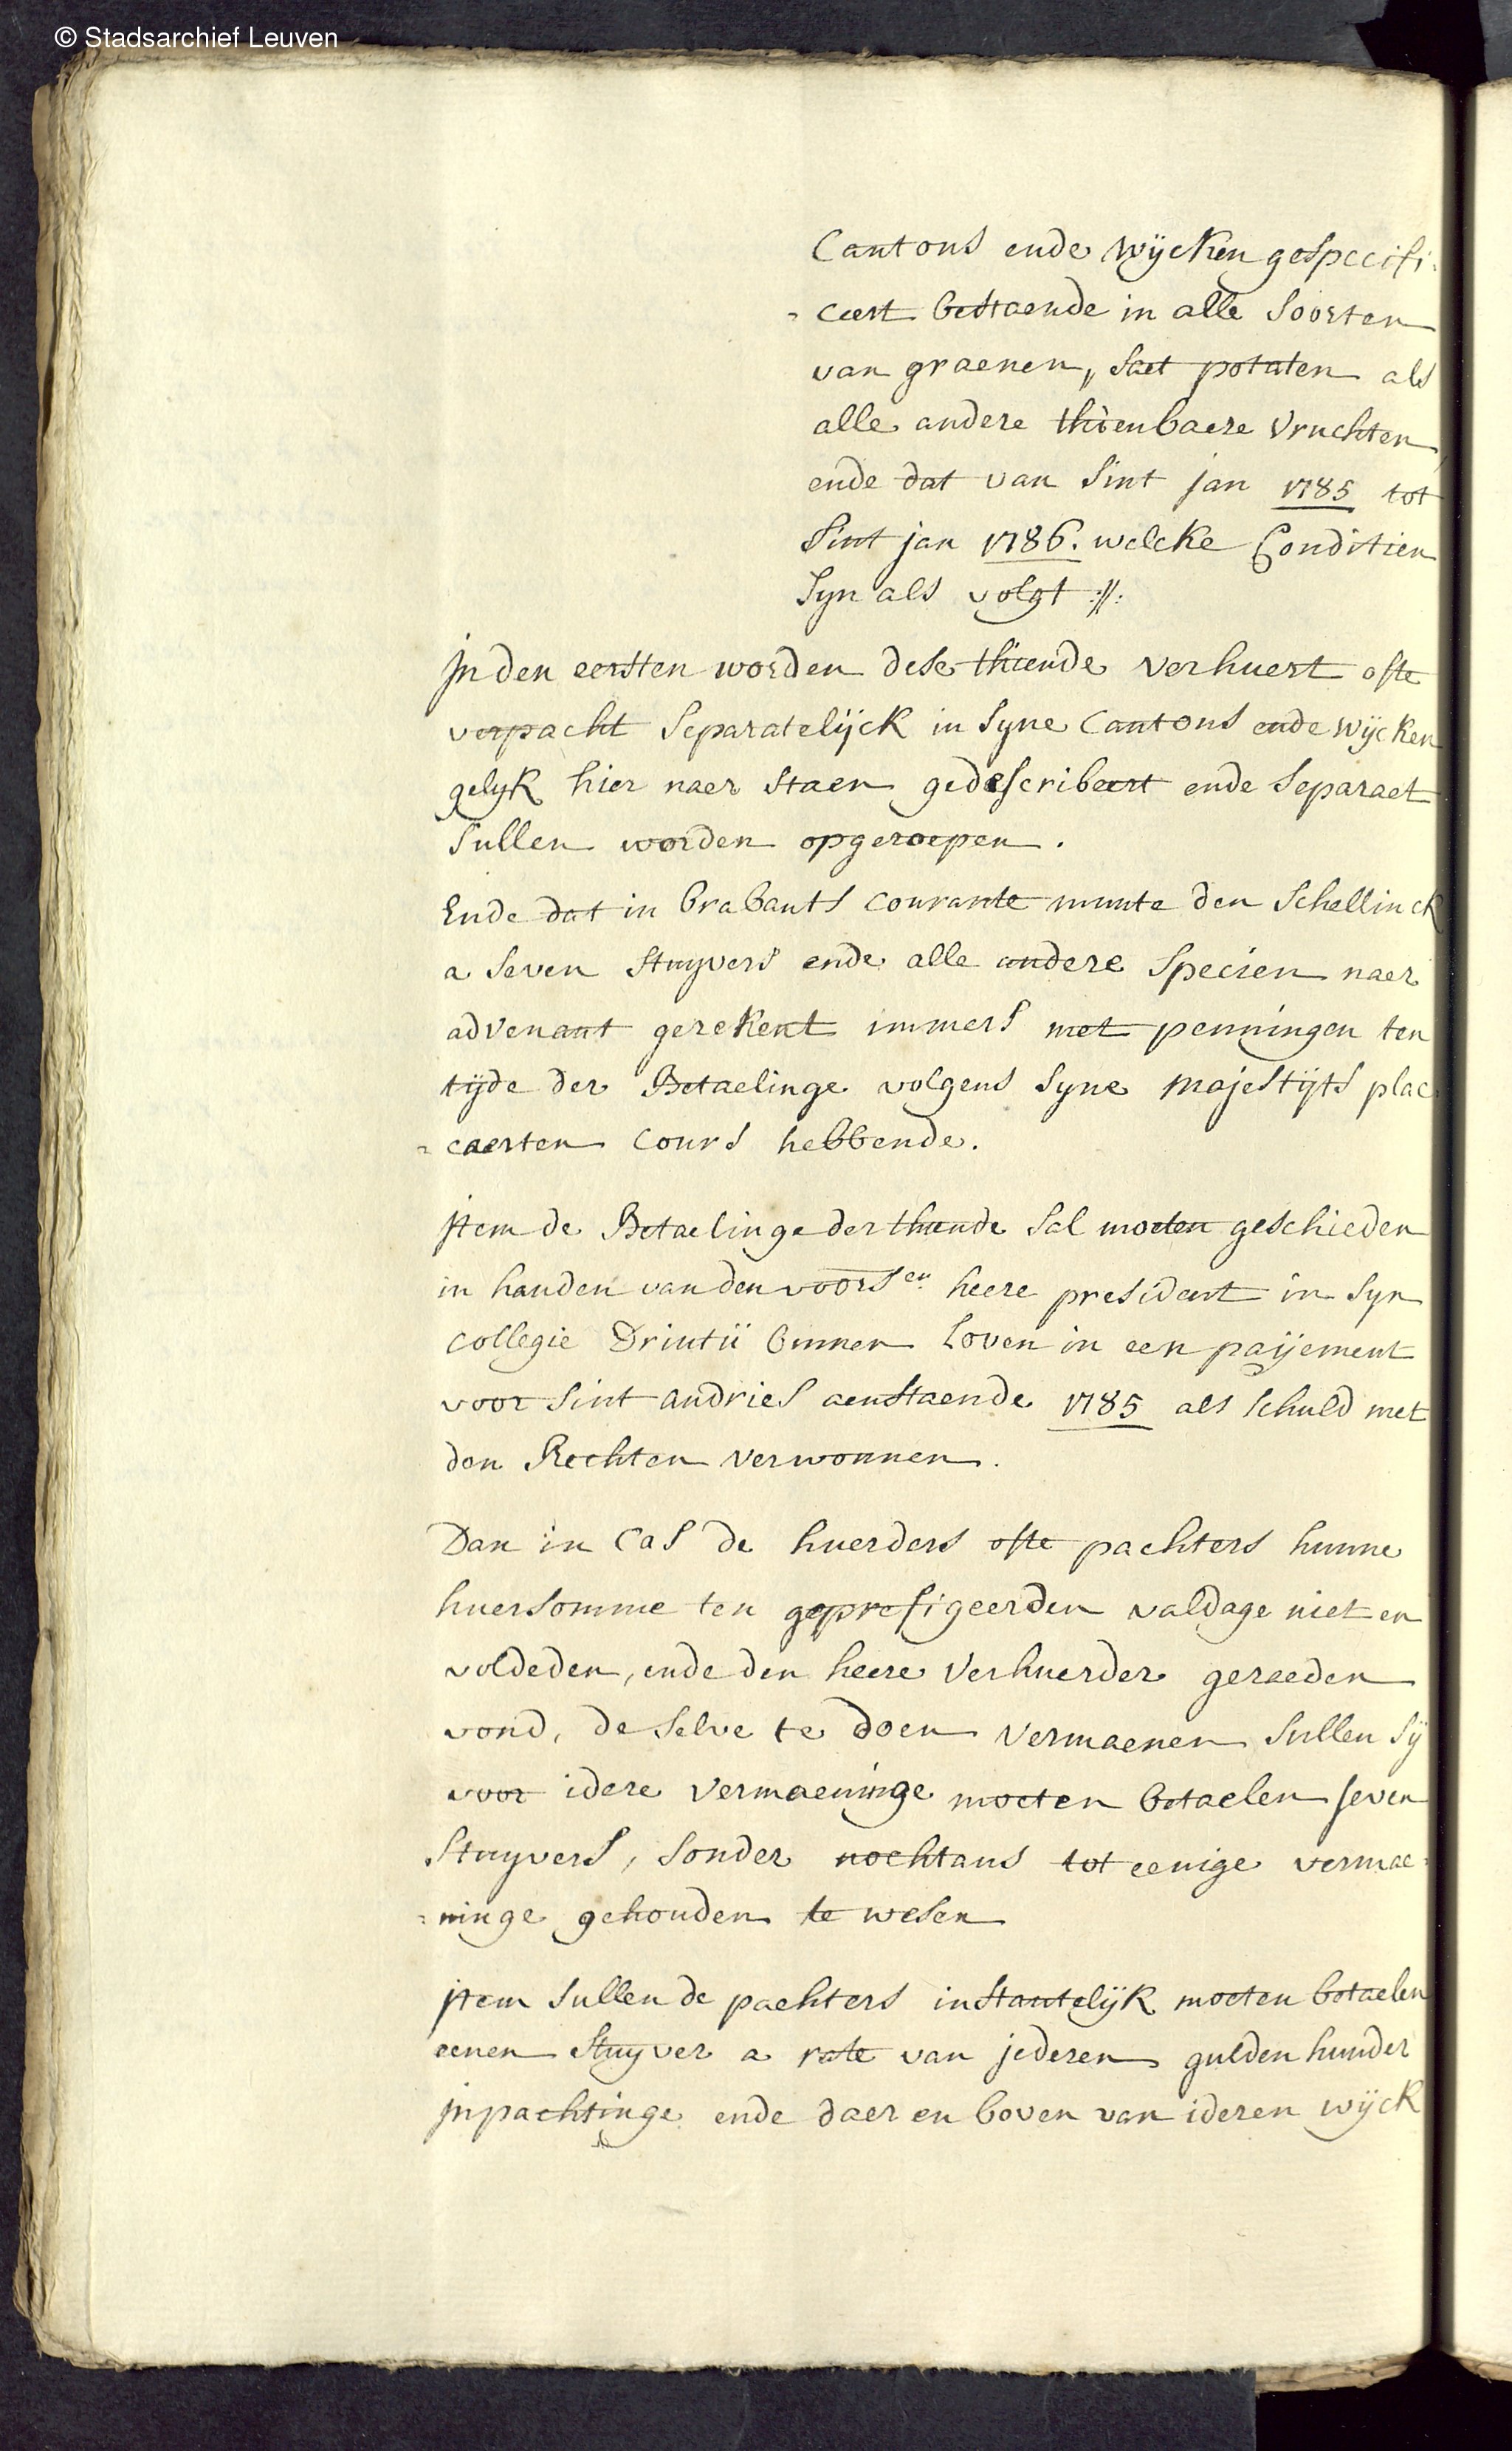 © Stadsarchief Leuven
Cantons ende wijcken gespecifi:
= ceert bestaende in alle soorten
van graenen, saet potaten als
alle andere thienbaere vruchten,
ende dat van sint jan 1785 tot
sint jan 1786. welcke Conditien
syn als volgt ://:
Jn den eersten worden dese thiende verhuert ofte
verpacht separatelijck in syne Cantons ende wijcken
gelyk hier naer staen gedescribeert ende separaet
sullen worden opgeroepen.
Ende dat in brabants courante munte den schellinck
a seven stuyvers ende alle andere specien naer
advenant gerekent immers met penningen ten
tijde der Betaelinge volgens syne majestijts plac
= caerten cours hebbende.
Jtem de Betaelinge der thiende sal moeten geschieden
in handen van den voorsen heere president in syn
collegie Driutii binnen Loven in een paijement
voor sint andries aenstaende 1785 als schuld met
den Rechten verwonnen.
Dan in cas de huerders ofte pachters hunne
huersomme ten geprefigeerden valdage niet en
voldeden, ende den heere verhuerder geraeden
vond, de selve te doen vermaenen sullen sij
voor idere vermaeninge moeten betaelen seven
stuyvers, sonder nochtans tot eenige vermae:
= ninge gehouden te wesen
jtem sullen de pachters instantelijk moeten betaelen
eenen stuyver a rate van jederen gulden hunder
jnpachtinge ende daer en boven van ideren wijck